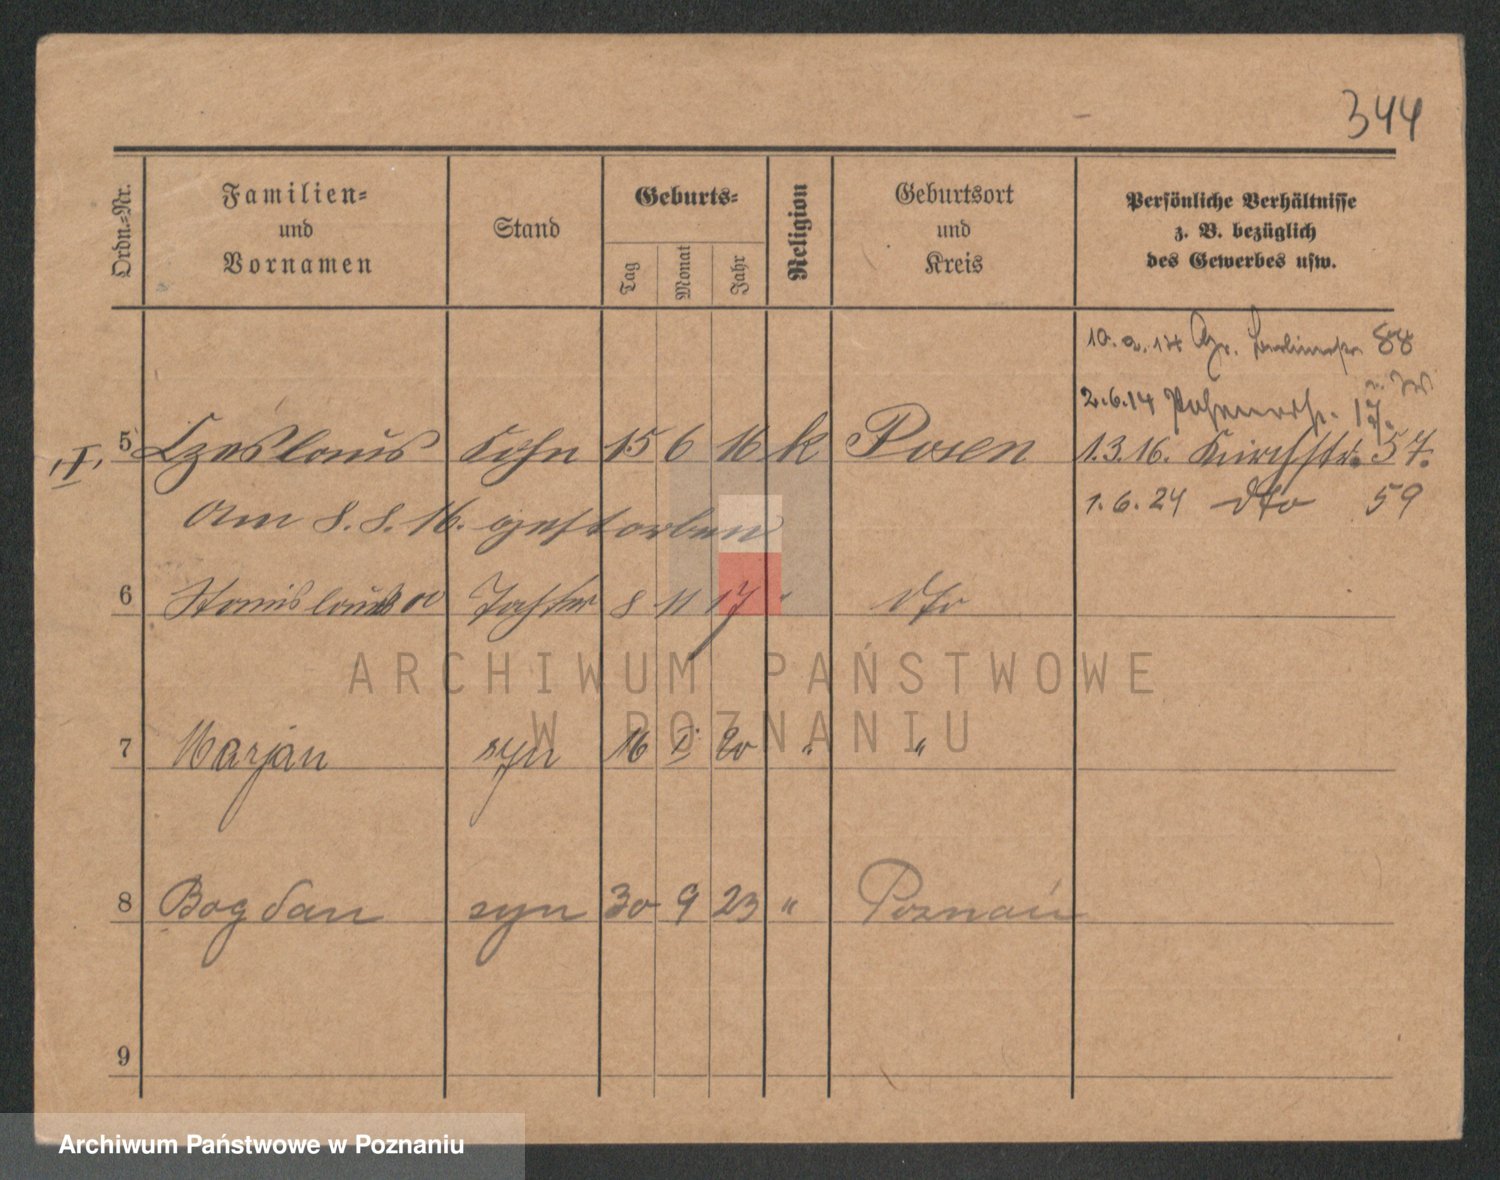 344
Ordn.-Nr.
Familien-
und
Vornamen
Stand
Geburts-
Tag
Monat
Jahr
Religion
Geburtsort
und
Kreis
Persönliche Verhältnisse
z. B. bezüglich
des Gewerbes usw.
10. 2. 14 88
2.6.14 17.
I. 5 Czeslaus Sohn 15 6 16 k Posen 1.3.16. Kirchstr. 57.
1.6.24 dto 59
Am 8.8.16. gestorben
6 Tochter 8 11 17 " dto
7 Marjan syn 16 I 20 " "
8 Bogdan syn 30 9 23 " Poznań
9
ARCHIWUM PAŃSTWOWE
W POZNANIU
Archiwum Państwowe w Poznaniu